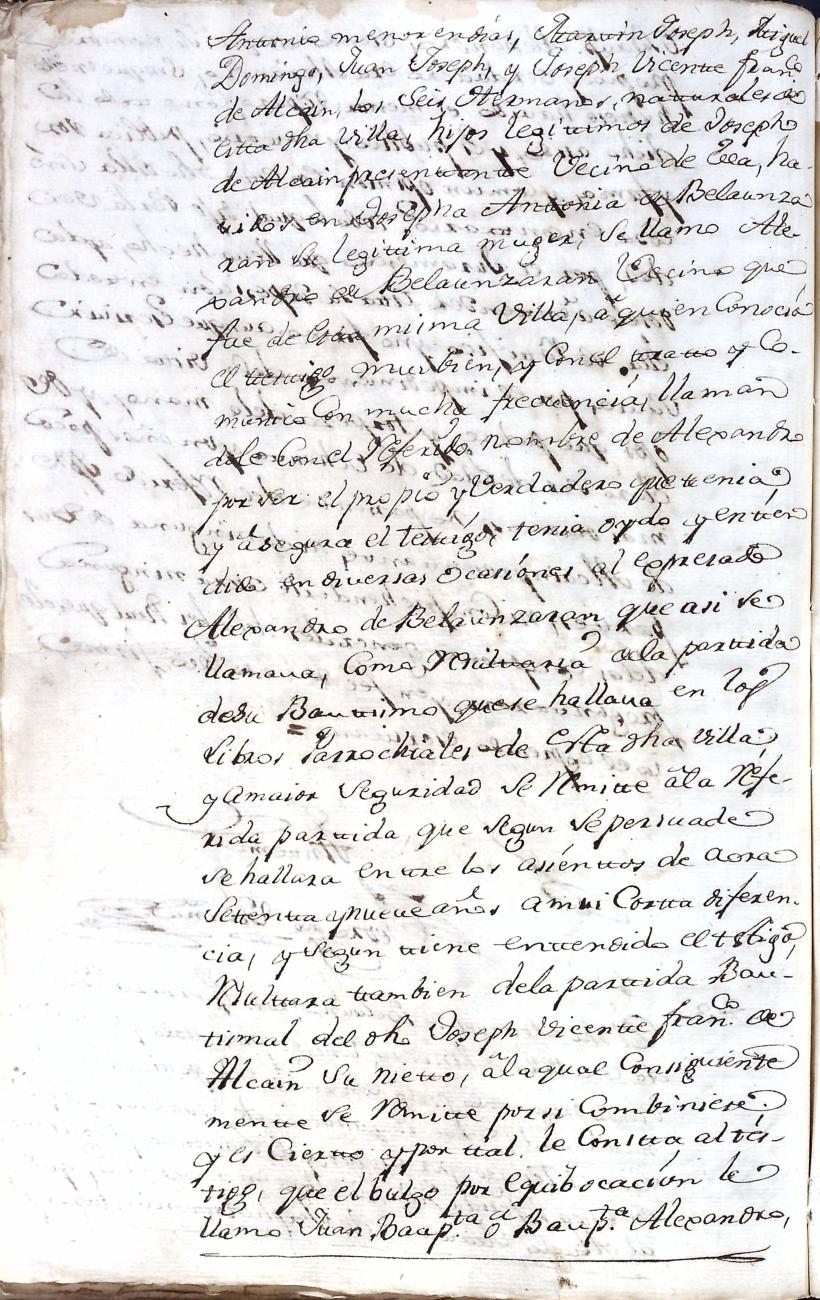 Antonia menor en días, Martin Joseph, Miguel
Domingo, Juan Joseph, y Joseph Vicente fran.co
de Alcain, los Seis Hermanos, naturales de
esta dha Villa, hijos legittimos de Joseph
de Alcain presenttante Vecino de ella, ha-
vidos en Josepha Antonia de Belaunza
ran su legittima muger, se llamo Ale-
xandro de Belaunzaran Vecino que
fue de esta misma Villa, â quien Conocio
el testigo mui bien, y con el tratto y Co-
munico con mucha frecuencia, llaman
dole con el Referido nombre de Alexandro
por ser el propio y Verdadero que tenia
y âsegura el testigo, tenia oydo y enten
dido en diversas ocasiones al expresado
Alexandro de Belaunzaran que asi se
llamava, Como Resultaria de la partida
de su Bauttismo que se hallava en los
Libros Parrochiales de esta dha villa,
y a maior Seguridad se Remitte â la Refe-
rida partida, que segun se persuade
se hallara entre los asienttos de aora
Settentta y nueve años a mui Cortta diferen-
cia, y segun tiene enttendido el testigo,
Resulttara ttambien de la partida Bau-
tismal del dho Joseph Vicente fran.co de
Alcain su nietto, â la qual Consiguiente
mente se Remitte por si Combiniese:
y es Cierto y por tal le Constta al tes-
tigo, que el bulgo por equibocacion le
llamo Juan Baup.ta ô Baup.ta Alexandro,